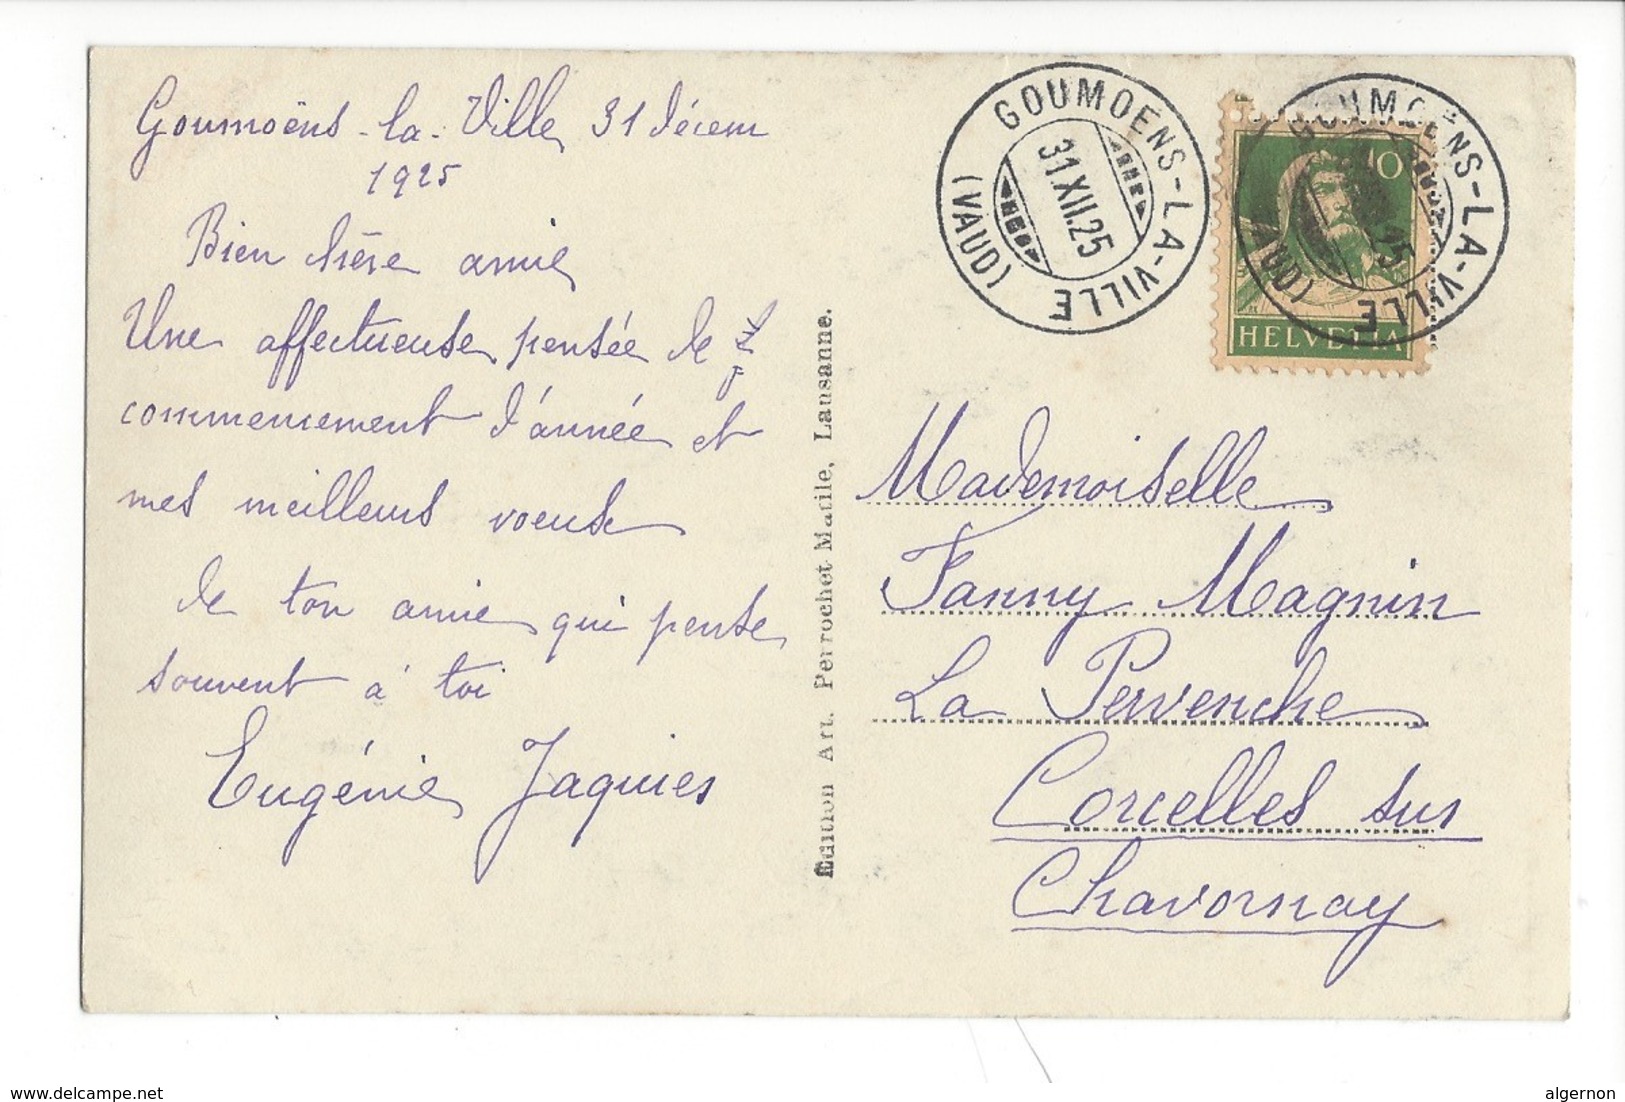 Goumoëns-la-Ville 31 décem
1925
Bien chère amie
Une affectueuse pensée de
commencement d'année et
mes meilleurs voeuse
de ton amie qui pense
souvent à toi
Eugénie Jaquies
Edition Art. Perrochet-Matile, Lausanne.
GOUMOENS-LA-VILLE
(VAUD)
31.XII.25
GOUMOENS-LA-VILLE
(VAUD)
10
HELVETIA
Mademoiselle
Fanny Magnin
La Pervenche
Corcelles sur
Chavornay
www.delcampe.net
algernon